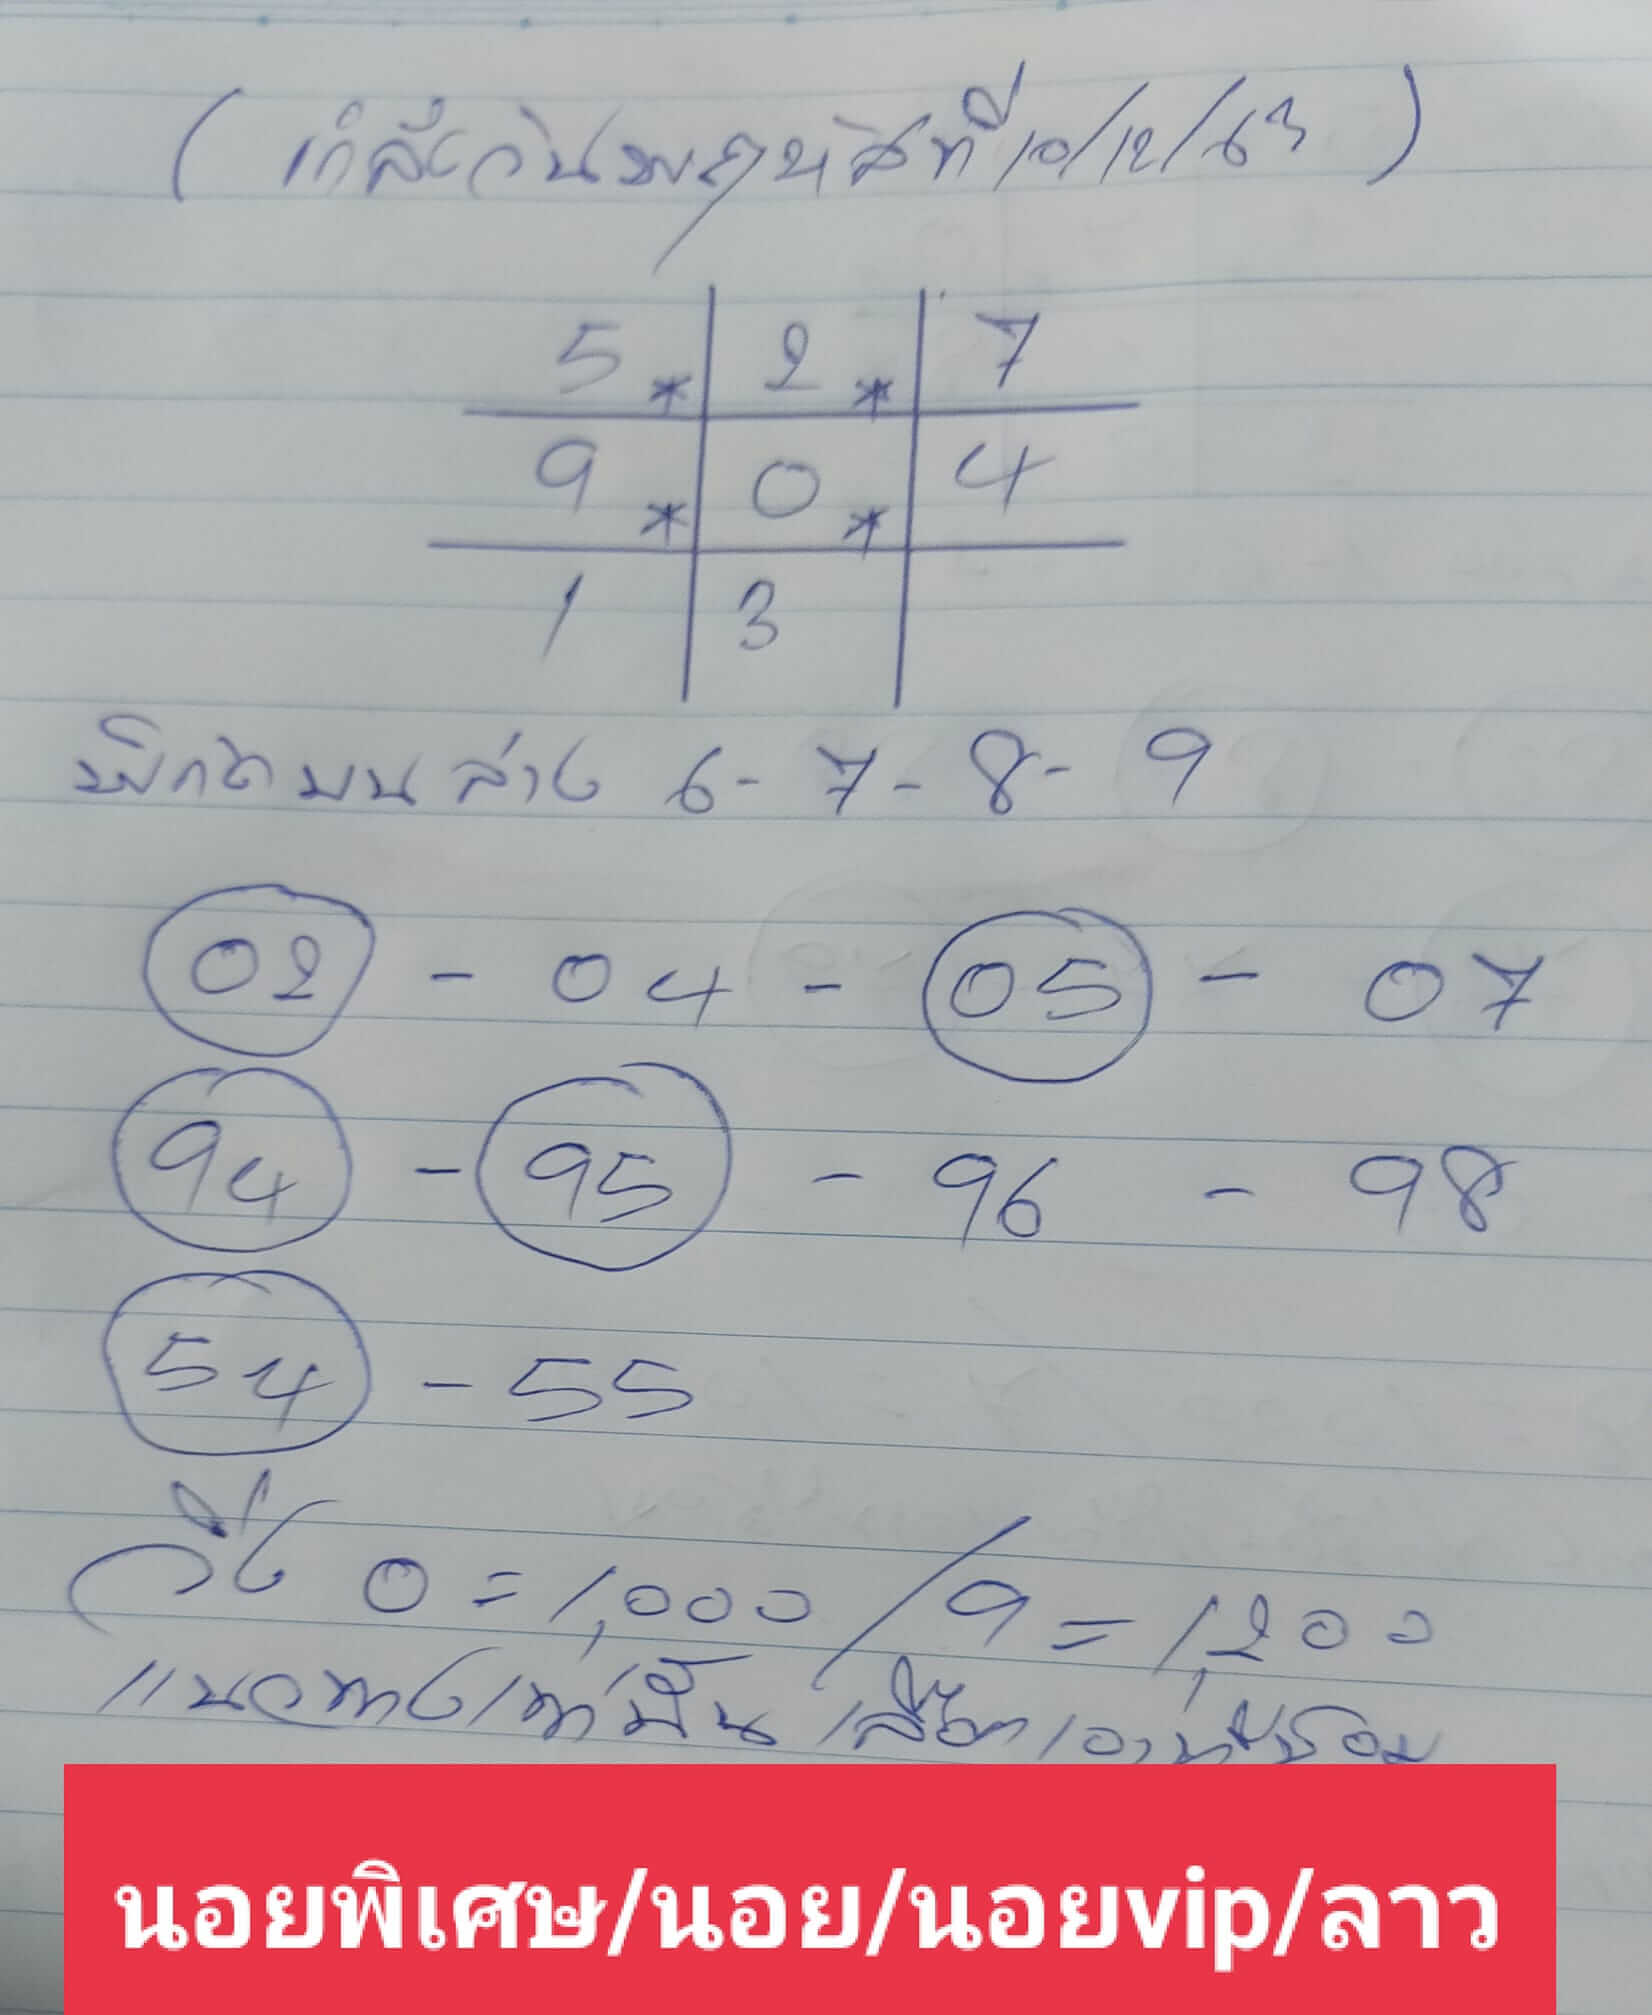 (กำลังวันพฤหัสที่10/12/63)
5 * 2 * 7
9 * 0 * 4
1 3
พิกัดบนล่าง 6-7-8-9
02 - 04 - 05 - 07
94 - 95 - 96 - 98
54 - 55
วิ่ง 0 = 1,000 / 9 = 1,200
แนวทางเท่านั้น
นอยพิเศษ/นอย/นอยvip/ลาว